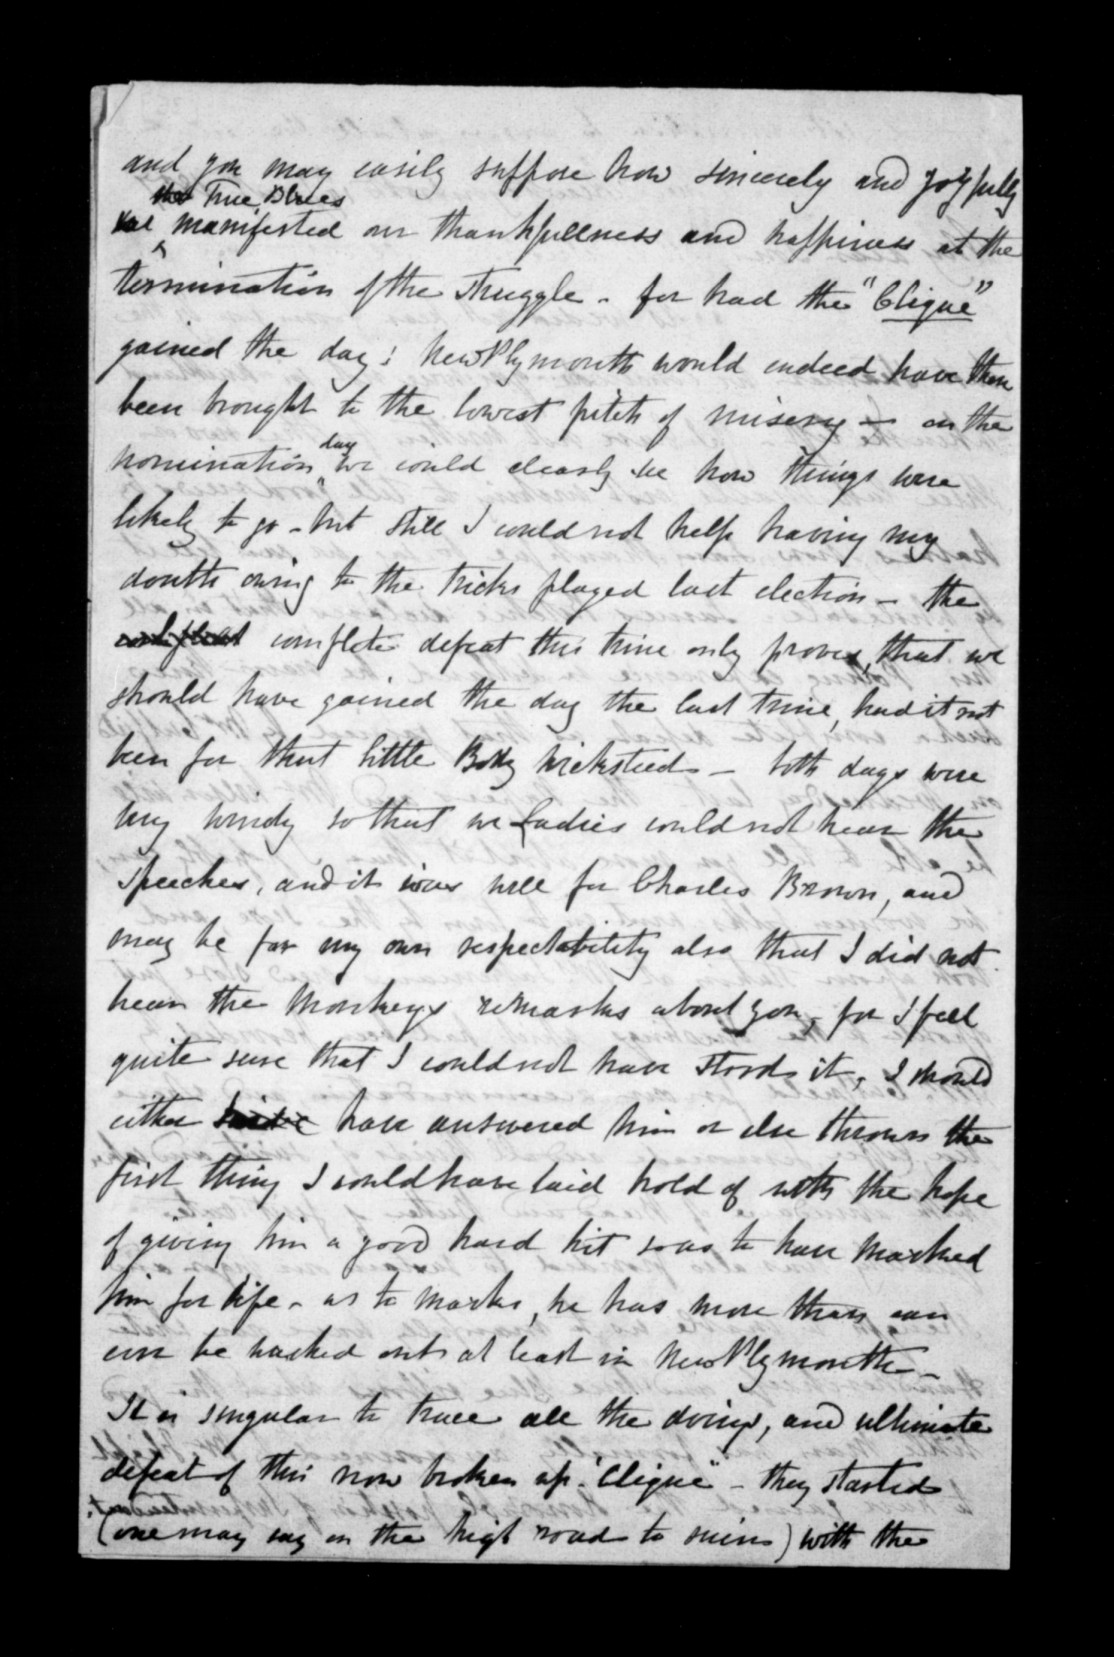 and you may easily suppose how sincerely and joyfully
the True Blues
we manifested our thankfullness and happiness at the
termination of the struggle - for had the "Clique"
gained the day; New Plymouth would indeed have then
been brought to the lowest pitch of misery - on the
nomination day we could clearly see how things were
likely to go - but still I could not help having my
doubts owing to the tricks played last election - the
complete defeat this time only proves, that we
should have gained the day the last time, had it not
been for that little Wicksteed - both days were
very windy so that we Ladies could not hear the
speeches, and it was well for Charles Brown, and
may be for my own respectability also that I did not
hear the Monkeys remarks about you, for I feel
quite sure that I could not have stood it, I should
either have answered him or else thrown the
first thing I could have laid hold of with the hope
of giving him a good hard hit so as to have marked
him for life - as to marks, he has more than can
ever be washed out at least in New Plymouth -
It is singular to trace all the doings, and ultimate
defeat of this now broken up "Clique" - they started
(one may say on the high road to ruin) with the